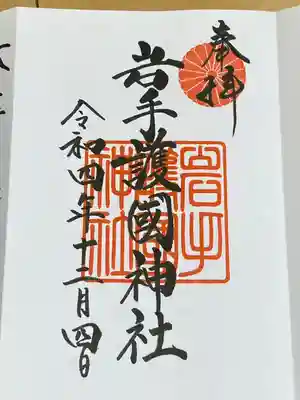 奉拝
岩手護國神社
岩手護國神社
令和四年十二月四日